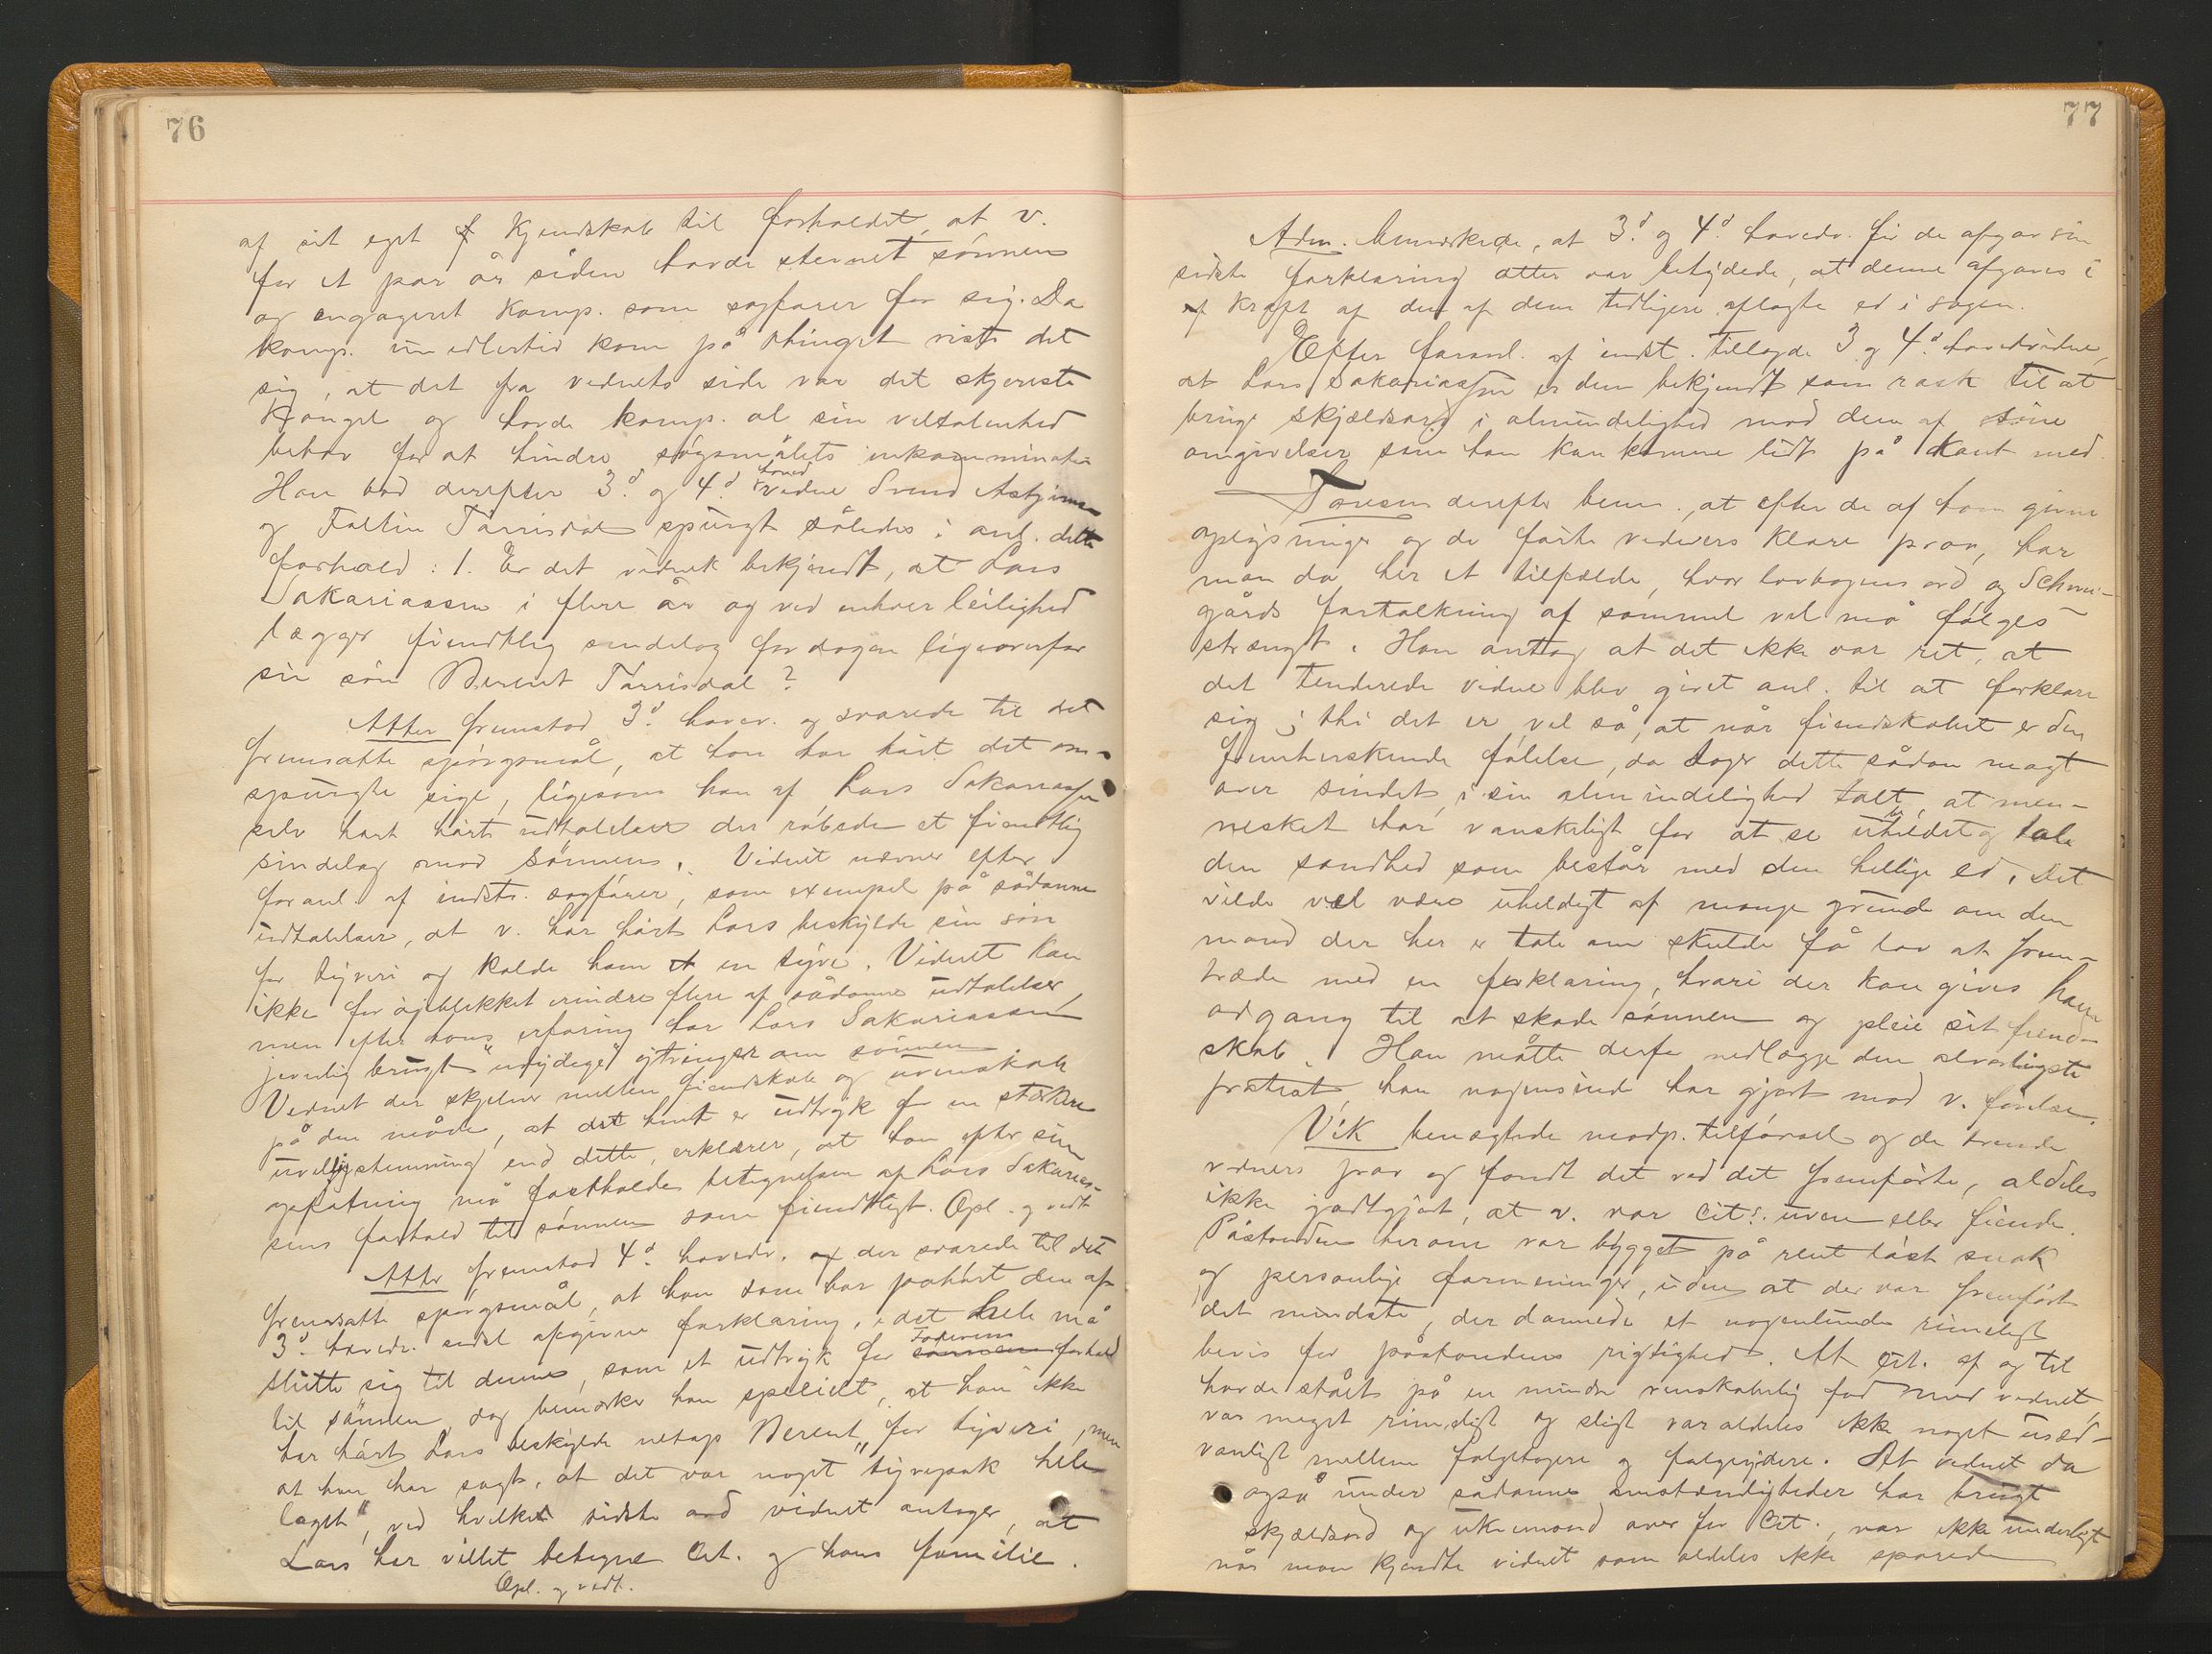 76
af sit eget Kjendskab til forholdet, at v.
for et par år siden havde stevnet sönnen
og engageret komp. som sagförer for sig. Da
komp. imidlertid kom på thinget viste det
sig, at det fra vidnets side var det skjereste
Kougel og havde komp. al sin veltalenhed
behov for at hindre sögsmålets inkamination
Han bad derefter 3d. og 4d. hovedvidne Svend
og Fallin Tarrisdal spurgt således i anl. dette
forhold: 1. Er det vidnet bekjendt, at Lars
Sakariassen i flere år og ved enhver leilighed
lægger fiendtlig sindelag for dagen ligeoverfor
sin sön Berent Tarrisdal?
Atter fremstod 3d. hovedv. og svarede til det
fremsatte spörgsmål, at han har hört det om-
spurgte sige, ligesom han af Lars Sakariassen
selv har hört udtalelser der röbede et fiendtlig
sindelag mod sönnen. Vidnet nævner efter
foranl. af indst. sagförer, som exempel på sådanne
udtalelser, at v. har hört Lars beskylde sin sön
for tyveri og kalde ham en tyv. Vidnet kan
ikke for öjeblikket erindre flere af sådanne udtalelser,
men efter hans erfaring har Lars Sakariassen
jevnlig brugt "usydege" ytringer om sönnen
Vidnet der skjelner mellem fiendskab og uvenskab
på den måde, at det hint er udtryk for en stærkere
uvilligstemning end dette, erklærer, at han efter sin
opfatning må fastholde betegnelsen af Lars Sakarias-
sens forhold til sönnen som fiendtligt. Opl. og vedt.
Atter fremstod 4d. hovedv. der svarede til det
fremsatte spörgsmål, at han som har påhört den af
3d. hovedv. sidst afgivne forklaring, i det hele må
slutte sig til denne, som et udtryk for Faderens forhold
til sönnen dog bemærker han specielt, at han ikke
har hört Lars beskylde netop Berent for tyveri, men
at han har sagt, at det var noget "tyvepak hele
laget", ved hvilket sidste ord vidnet antager, at
Lars har villet betegne Cit. og hans familie.
Opl. og vedt.
77
Adm. bemærkede, at 3d. og 4d. hovedv. för de afgav sin
sidste forklaring atter var betydede, at denne afgaves i
kraft af den af dem tidligere aflagte ed i sagen.
Efter foranl. af indst. tillagde 3 og 4d. hovedvidne,
at Lars Sakariassen er dem bekjendt som rask til at
bruge skjældsord i almindelighed mod dem af sine
omgivelser som han kan komme lidt på kant med.
Toresen derefter bem., at efter de af ham givne
oplysninger og de förte vidners klare prov, har
man da her et tilfælde, hvor lovbogens ord og Schwei-
gårds fortolkning af sammel vel må fölges
strengt. Han antog at det ikke var ret, at
det tenderede vidne blev givet anl. til at forklare
sig; thi det er vel så, at når fiendskabet er den
fremherskende fölelse, da tager dette sådan magt
over sindet, i sin almindelighed talt, at men-
nesket har vanskeligt for at se uhildet og tale
den sandhed som består med den hellige ed. Det
vilde vel være uheldigt af mange grunde om den
mand der her er tale om skulde få lov at frem-
træde med en forklaring, hvori der kan gives ham
adgang til at skade sönnen og pleie sit fiend-
skab. Han måtte derfor nedlægge den alvorligste
protest, han nogensinde har gjort mod v. förelse.
Vik benægtede modp. tilförsel og de trende
vidners prov og fandt det ved det fremförte, aldeles
ikke godtgjort, at v. var cits. uven eller fiende.
Påstanden herom var bygget på rent löst snak
og personlige formeninger, uden at der var fremfört
det mindste, der dannede et nogenlunde rimeligt
bevis for påstandens rigtighed. At Cit. af og til
havde stået på en mindre venskabelig fod med vidnet
var meget rimeligt og sligt var aldeles ikke noget used-
vanligt mellem folgetagere og folgeydere. At vidnet da
også under sådanne omstændigheder har brugt
skjældsord og ukvemsord over for Cit., var ikke underligt
når man kjendte vidnet som aldeles ikke sparede